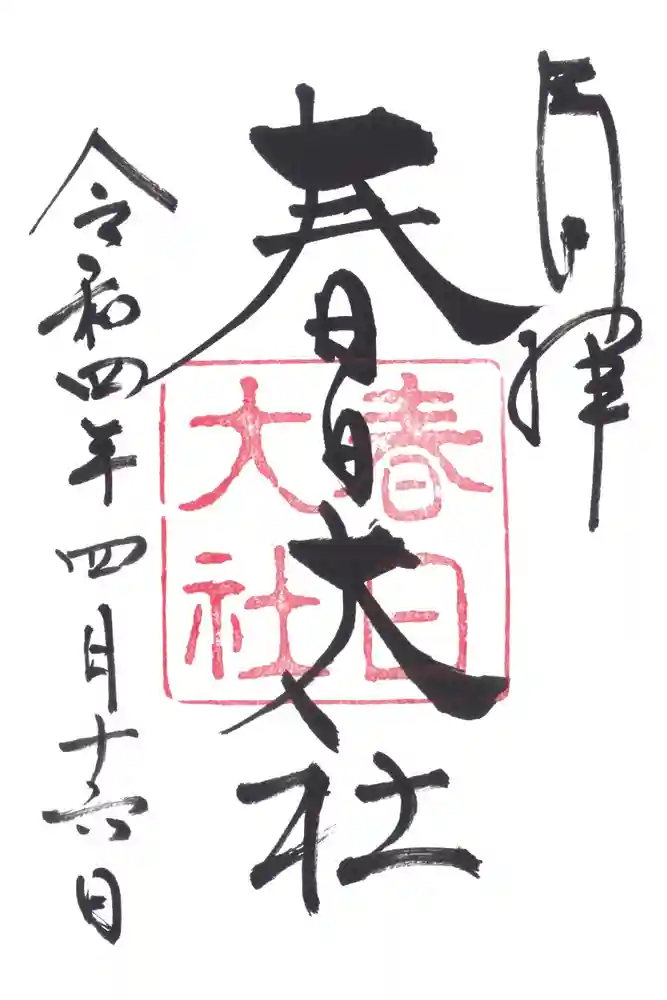 奉拝
春日大社
春日
大社
令和四年四月十六日